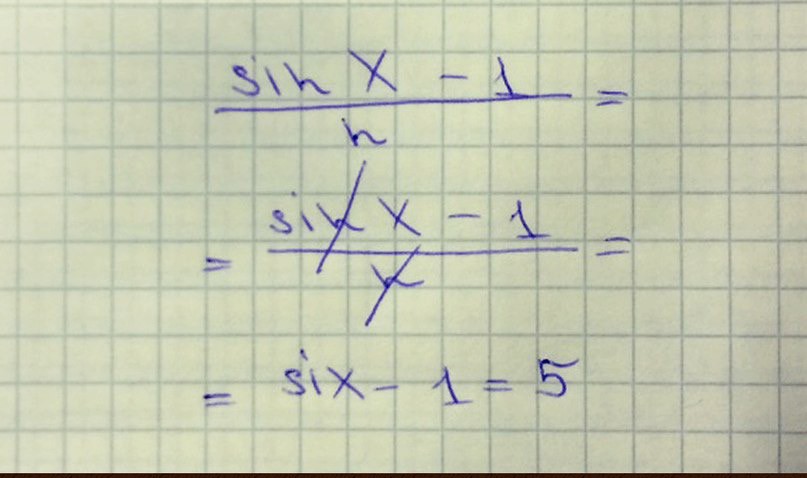 sin X - 1 =
n
= sin X - 1 =
n
= six - 1 = 5